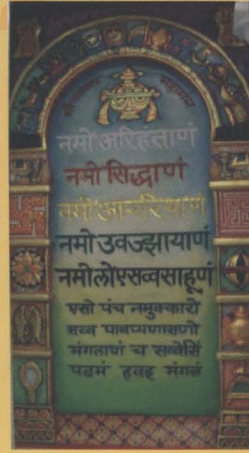 नमो अरिहंताणं
नमो सिद्धाणं
नमो आयरियाणं
नमो उवज्झायाणं
नमो लोएसव्वसाहूणं
एसो पंच नमुक्कारो
सव्व पावप्पणासणो
मंगलाणं च सव्वेसिं
पढमं हवइ मंगलं